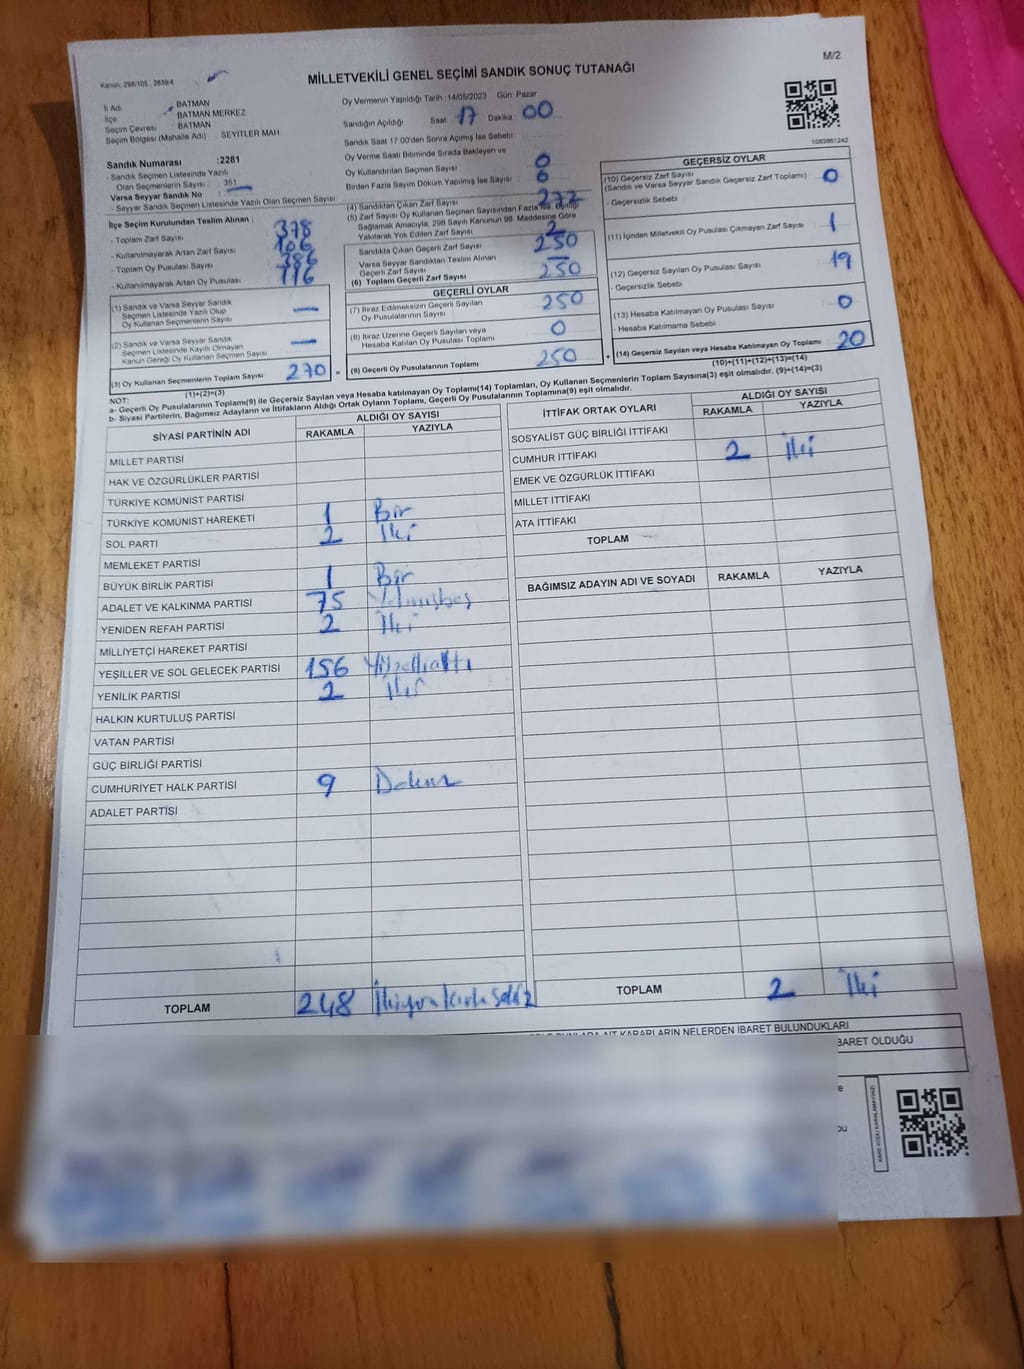 M/2
Kanun: 298/105 , 2839/4
MİLLETVEKİLİ GENEL SEÇİMİ SANDIK SONUÇ TUTANAĞI
İl Adı BATMAN
İlçe BATMAN MERKEZ
Seçim Çevresi BATMAN
Seçim Bölgesi (Mahalle Adı) : SEYİTLER MAH
Sandık Numarası :2281
- Sandık Seçmen Listesinde Yazılı
Olan Seçmenlerin Sayısı : 351
Varsa Seyyar Sandık No
- Seyyar Sandık Seçmen Listesinde Yazılı Olan Seçmen Sayısı
İlçe Seçim Kurulundan Teslim Alınan :
- Toplam Zarf Sayısı 378
- Kullanılmayarak Artan Zarf Sayısı 106
- Toplam Oy Pusulası Sayısı 386
- Kullanılmayarak Artan Oy Pusulası 116
(1) Sandık ve Varsa Seyyar Sandık
Seçmen Listesinde Yazılı Olup
Oy Kullanan Seçmenlerin Sayısı —
(2) Sandık ve Varsa Seyyar Sandık
Seçmen Listesinde Kayıtlı Olmayan
Kanun Gereği Oy Kullanan Seçmen Sayısı —
(3) Oy Kullanan Seçmenlerin Toplam Sayısı 270
(1)+(2)=(3)
Oy Vermenin Yapıldığı Tarih :14/05/2023 Gün: Pazar
Sandığın Açıldığı Saat : 17 Dakika : 00
Sandık Saat 17.00'den Sonra Açılmış İse Sebebi :
Oy Verme Saati Bitiminde Sırada Bekleyen ve
Oy Kullandırılan Seçmen Sayısı 0
Birden Fazla Sayım Döküm Yapılmış İse Sayısı 0
(4) Sandıktan Çıkan Zarf Sayısı 272
(5) Zarf Sayısı Oy Kullanan Seçmen Sayısından Fazla İse, Eşitliği
Sağlamak Amacıyla, 298 Sayılı Kanunun 98. Maddesine Göre
Yakılarak Yok Edilen Zarf Sayısı 2
Sandıkta Çıkan Geçerli Zarf Sayısı 250
Varsa Seyyar Sandıktan Teslim Alınan
Geçerli Zarf Sayısı —
(6) Toplam Geçerli Zarf Sayısı 250
GEÇERLİ OYLAR
(7) İtiraz Edilmeksizin Geçerli Sayılan
Oy Pusulalarının Sayısı 250
(8) İtiraz Üzerine Geçerli Sayılan veya
Hesaba Katılan Oy Pusulası Toplamı 0
= (9) Geçerli Oy Pusulalarının Toplamı 250 +
1083861242
GEÇERSİZ OYLAR
(10) Geçersiz Zarf Sayısı
(Sandık ve Varsa Seyyar Sandık Geçersiz Zarf Toplamı) 0
- Geçersizlik Sebebi
(11) İçinden Milletvekili Oy Pusulası Çıkmayan Zarf Sayısı 1
(12) Geçersiz Sayılan Oy Pusulası Sayısı 19
- Geçersizlik Sebebi
(13) Hesaba Katılmayan Oy Pusulası Sayısı 0
- Hesaba Katılmama Sebebi
(14) Geçersiz Sayılan veya Hesaba Katılmayan Oy Toplamı 20
(10)+(11)+(12)+(13)=(14)
NOT:
a- Geçerli Oy Pusulalarının Toplamı(9) ile Geçersiz Sayılan veya Hesaba Katılmayan Oy Toplamı(14) Toplamları, Oy Kullanan Seçmenlerin Toplam Sayısına(3) eşit olmalıdır. (9)+(14)=(3)
b- Siyasi Partilerin, Bağımsız Adayların ve İttifakların Aldığı Ortak Oyların Toplamı, Geçerli Oy Pusulalarının Toplamına(9) eşit olmalıdır.
SİYASİ PARTİNİN ADI ALDIĞI OY SAYISI
RAKAMLA YAZIYLA
MİLLET PARTİSİ
HAK VE ÖZGÜRLÜKLER PARTİSİ
TÜRKİYE KOMÜNİST PARTİSİ
TÜRKİYE KOMÜNİST HAREKETİ 1 Bir
SOL PARTİ 2 İki
MEMLEKET PARTİSİ
BÜYÜK BİRLİK PARTİSİ 1 Bir
ADALET VE KALKINMA PARTİSİ 75 Yetmişbeş
YENİDEN REFAH PARTİSİ 2 İki
MİLLİYETÇİ HAREKET PARTİSİ
YEŞİLLER VE SOL GELECEK PARTİSİ 156 Yüzelliatı
YENİLİK PARTİSİ 2 İki
HALKIN KURTULUŞ PARTİSİ
VATAN PARTİSİ
GÜÇ BİRLİĞİ PARTİSİ
CUMHURİYET HALK PARTİSİ 9 Dokuz
ADALET PARTİSİ
TOPLAM 248 İkiyüzkırksekiz
İTTİFAK ORTAK OYLARI ALDIĞI OY SAYISI
RAKAMLA YAZIYLA
SOSYALİST GÜÇ BİRLİĞİ İTTİFAKI
CUMHUR İTTİFAKI 2 İki
EMEK VE ÖZGÜRLÜK İTTİFAKI
MİLLET İTTİFAKI
ATA İTTİFAKI
TOPLAM
BAĞIMSIZ ADAYIN ADI VE SOYADI RAKAMLA YAZIYLA
TOPLAM 2 İki
KARARLARIN NELERDEN İBARET BULUNDUKLARI
BARET OLDUĞU